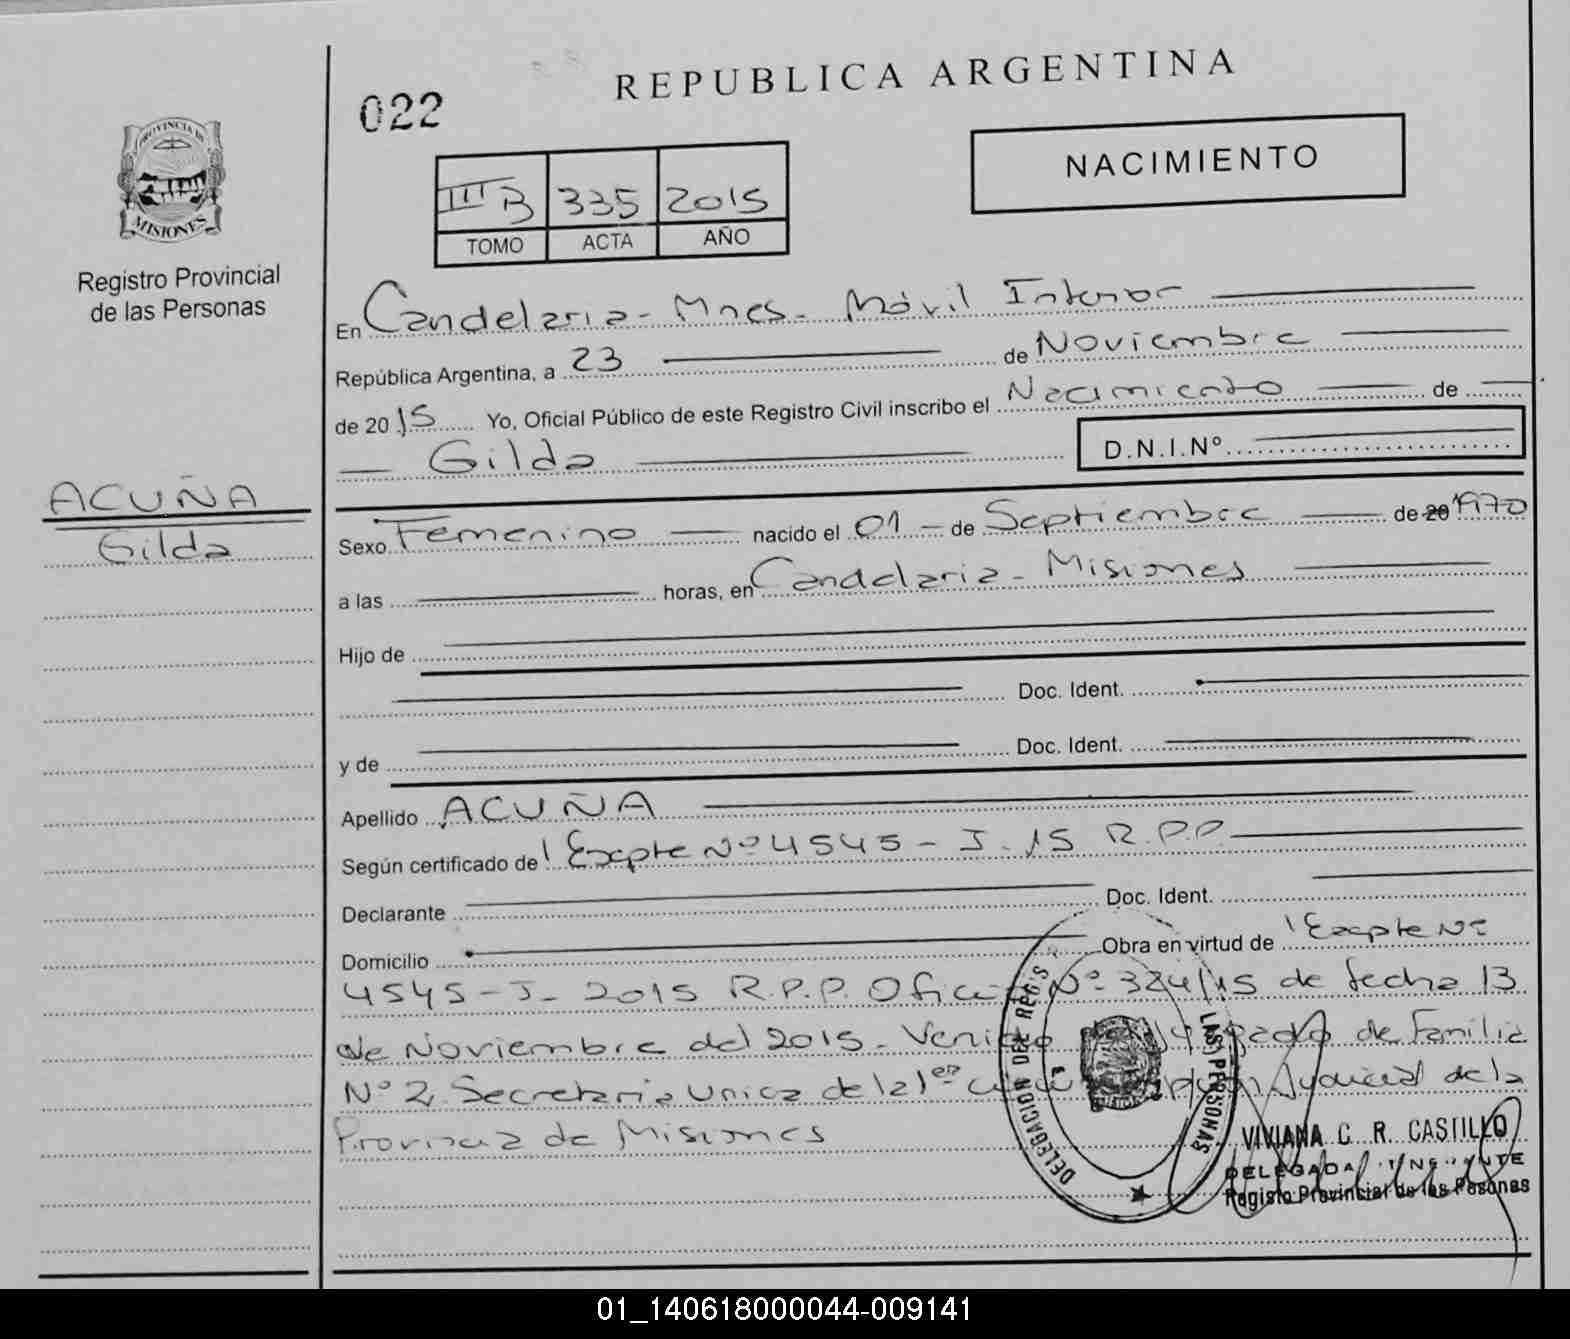 REPUBLICA ARGENTINA
022
NACIMIENTO
III B 335 2015
TOMO ACTA AÑO
PROVINCIA DE
MISIONES
Registro Provincial
de las Personas
En Candelaria - Mnes. Móvil Interior
República Argentina, a 23 de Noviembre
de 2015 Yo, Oficial Público de este Registro Civil inscribo el Nacimiento de
Gilda D.N.I.Nº
ACUÑA
Gilda
Sexo Femenino nacido el 01 - de Septiembre de 20 1970
a las horas, en Candelaria - Misiones
Hijo de
Doc. Ident.
y de Doc. Ident.
Apellido ACUÑA
Según certificado de Expte Nº 4545 - J - 15 R.P.P.
Declarante Doc. Ident.
Domicilio Obra en virtud de Expte Nº
4545 - J - 2015 R.P.P. Oficio Nº 324/15 de fecha 13
de Noviembre del 2015 - de Familia
Nº 2, Secretaria Unica de la 1er Judicial de la
Provincia de Misiones
DELEGACION DEL REGIS LAS PERSONAS
VIVIANA C. R. CASTILLO
DELEGADA
Registo Provincial de las Pesonas
01_140618000044-009141